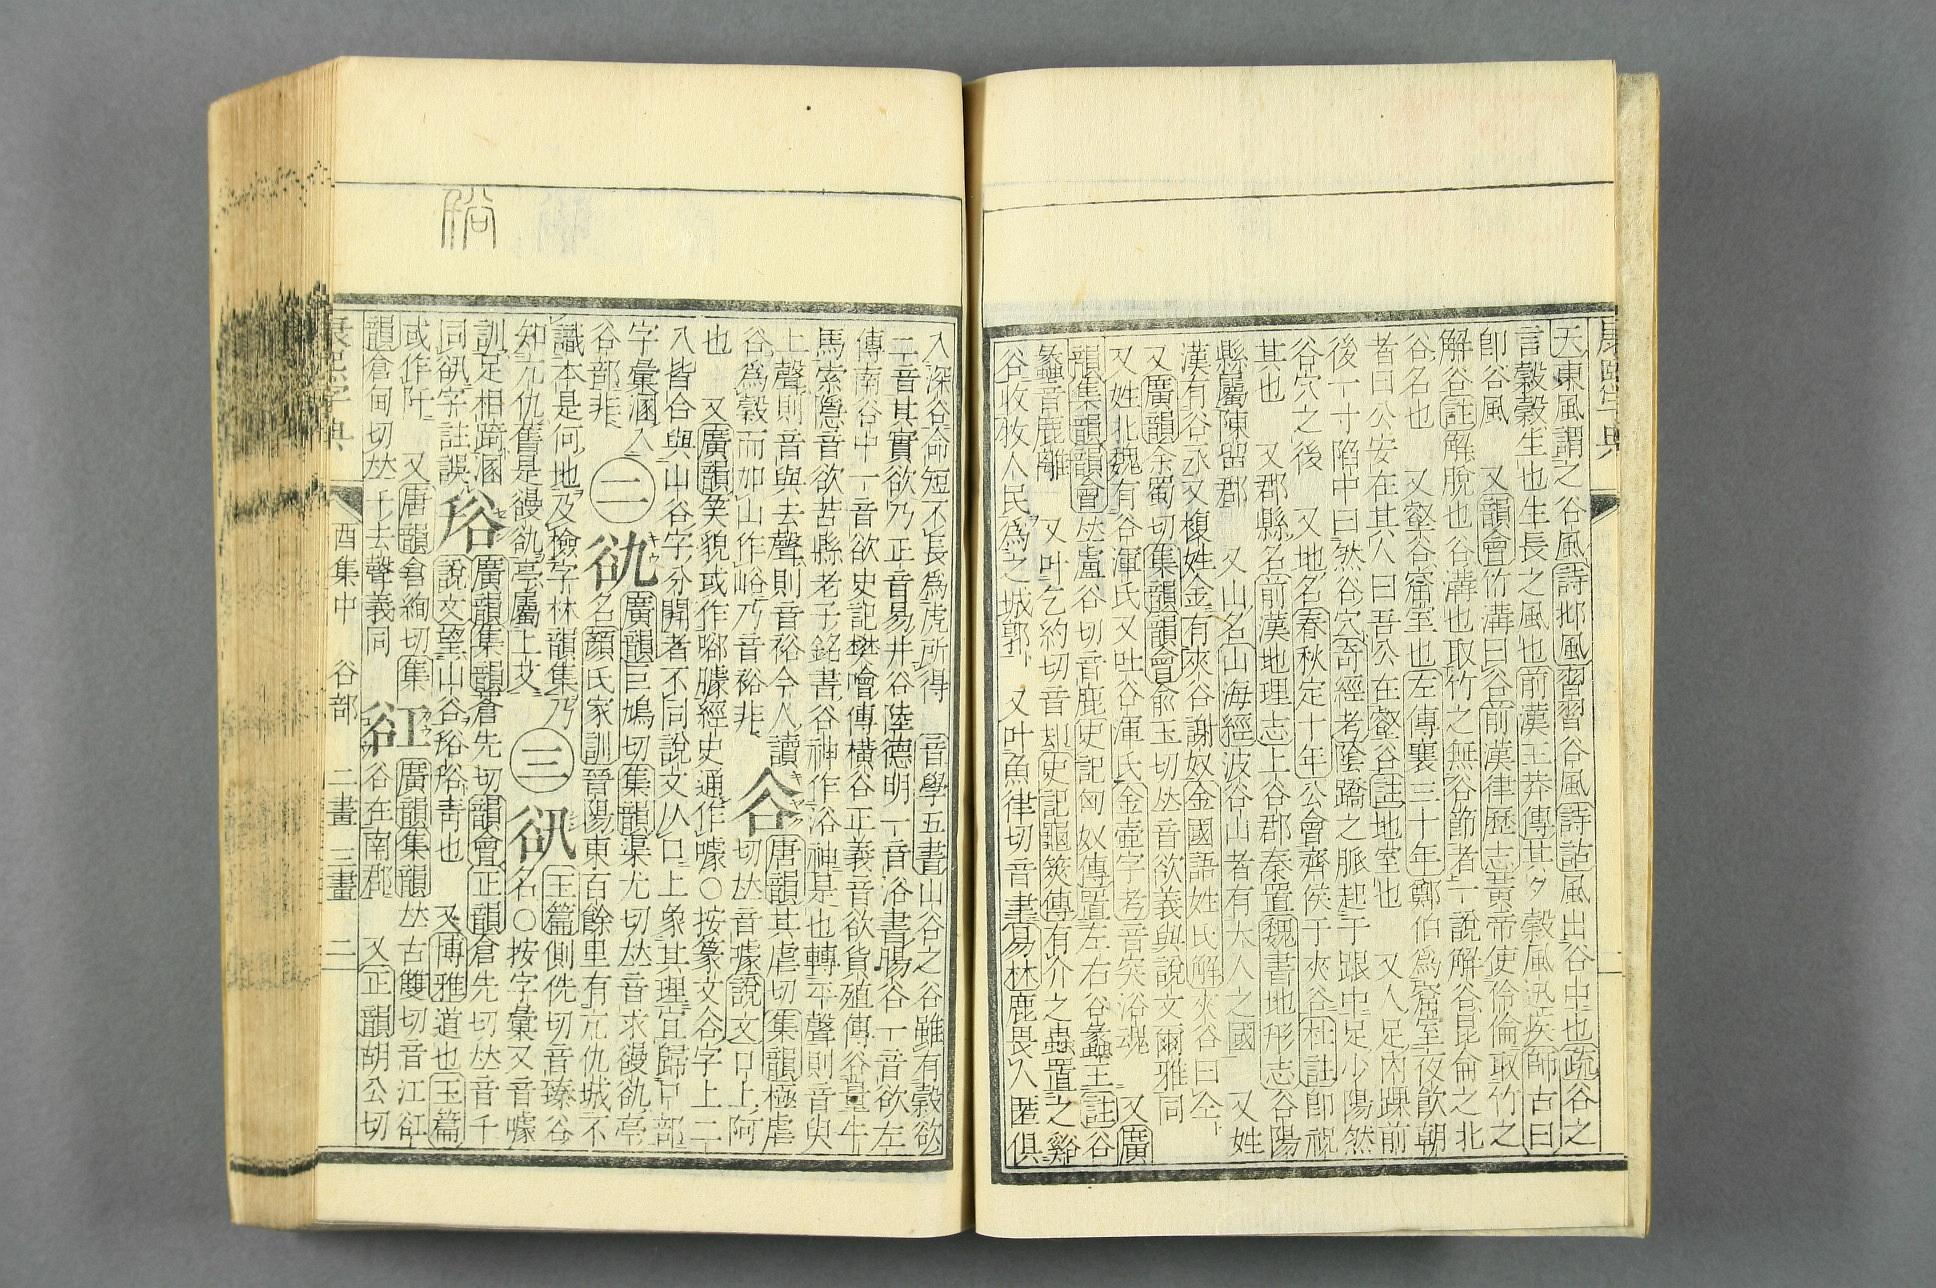 天東風謂之谷風詩邶風習習谷風詩詁風出谷中也疏谷之
言穀穀生也生長之風也前漢王莽傳其夕穀風迅疾師古曰
卽谷風　又韻會竹溝曰谷前漢律歷志黃帝使伶倫取竹之
解谷註解脫也谷溝也取竹之無谷節者一說解谷昆倫之北
谷名也　又壑谷窟室也左傳襄三十年鄭伯爲窟室夜飮朝
者曰公安在其人曰吾公在壑谷註地室也　又人足內踝前
後一寸陷中曰然谷穴奇經考陰蹻之脈起于跟中足少陽然
谷穴之後　又地名春秋定十年公會齊侯于夾谷杜註卽祝
其也　又郡縣名前漢地理志上谷郡秦置魏書地形志谷陽
縣屬陳留郡　又山名山海經波谷山者有大人之國　又姓
漢有谷永又複姓金有夾谷謝奴金國語姓氏解夾谷曰仝
又姓北魏有谷渾氏又吐谷渾氏金壺字考音突浴魂　又廣
又廣韻余蜀切集韻韻會俞玉切𠀤音欲義與說文爾雅同
韻集韻韻會𠀤盧谷切音鹿史記匈奴傳置左右谷蠡王註谷
蠡音鹿離　又叶乞約切音却史記龜筴傳有介之蟲置之谿
谷收牧人民爲之城郭　又叶魚律切音聿易林鹿畏人匿俱
入深谷命短不長爲虎所得　音學五書山谷之谷雖有穀欲
二音其實欲乃正音易井谷陸德明一音浴書暘谷一音欲左
傳南谷中一音欲史記樊噲傳橫谷正義音欲貨殖傳谷量牛
馬索隱音欲苦縣老子銘書谷神作浴神是也轉平聲則音臾
上聲則音與去聲則音裕今人讀
谷爲穀而加山作峪乃音裕非
谷唐韻其虐切集韻極虐切𠀤音噱說文口上阿
也　又廣韻笑貌或作㗲臄經史通作噱○按篆文谷字上二
八皆合與山谷字分開者不同說文从口上象其理宜歸口部
字彙溷入
谷部非
二
㕤廣韻巨鳩切集韻渠尤切𠀤音求䜱㕤亭
名顏氏家訓晉陽東百餘里有亢仇城不
識本是何地及檢字林韻集乃
知亢仇舊是䜱㕤亭屬上艾
三
玉篇側侁切音臻谷
名○按字彙又音噱
訓足相踦溷
同㕤字註誤
谸廣韻集韻蒼先切韻會正韻倉先切𠀤音千
說文望山谷谸谸靑也　又博雅道也玉篇
或作阡　又唐韻倉絢切集
韻倉甸切𠀤千去聲義同
谾廣韻集韻𠀤古雙切音江谾
谷在南郡　又正韻胡公切
康熙字典　酉集中　谷部　二畫　三畫　二